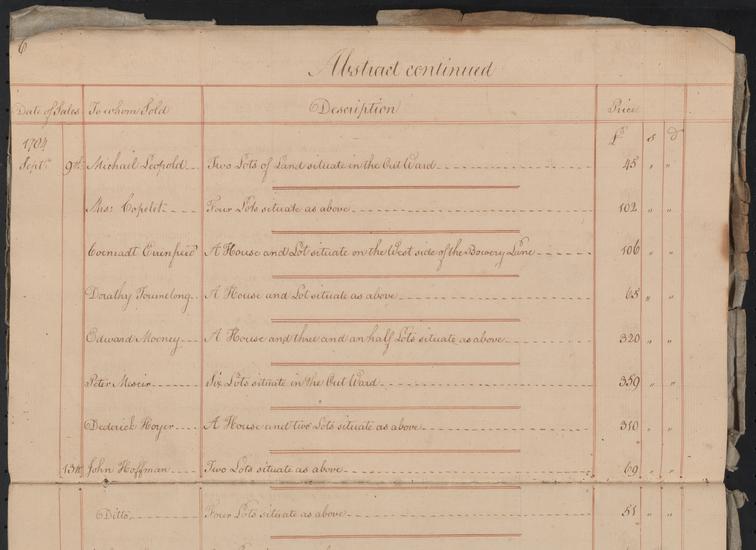 6
Abstract continued
Date of Sales To whom Sold Description Price
1784 £ s d
Septr. 9th. Michail Leopold Two Lots of Land situate in the Out Ward 45 " "
Mrs. Copelet Four Lots situate as above 102 " "
Coenradt Eirinfried A House and Lot situate on the West side of the Bowery Lane 106 " "
Dorathy A House and Lot situate as above 65 " "
Edward Mooney A House and three and an half Lots situate as above 320 " "
Peter Mesier Six Lots situate in the Out Ward 359 " "
Dederick Hoyer A House and two Lots situate as above 310 " "
13th John Hoffman Two Lots situate as above 69 " "
Ditto Four Lots situate as above 51 " "